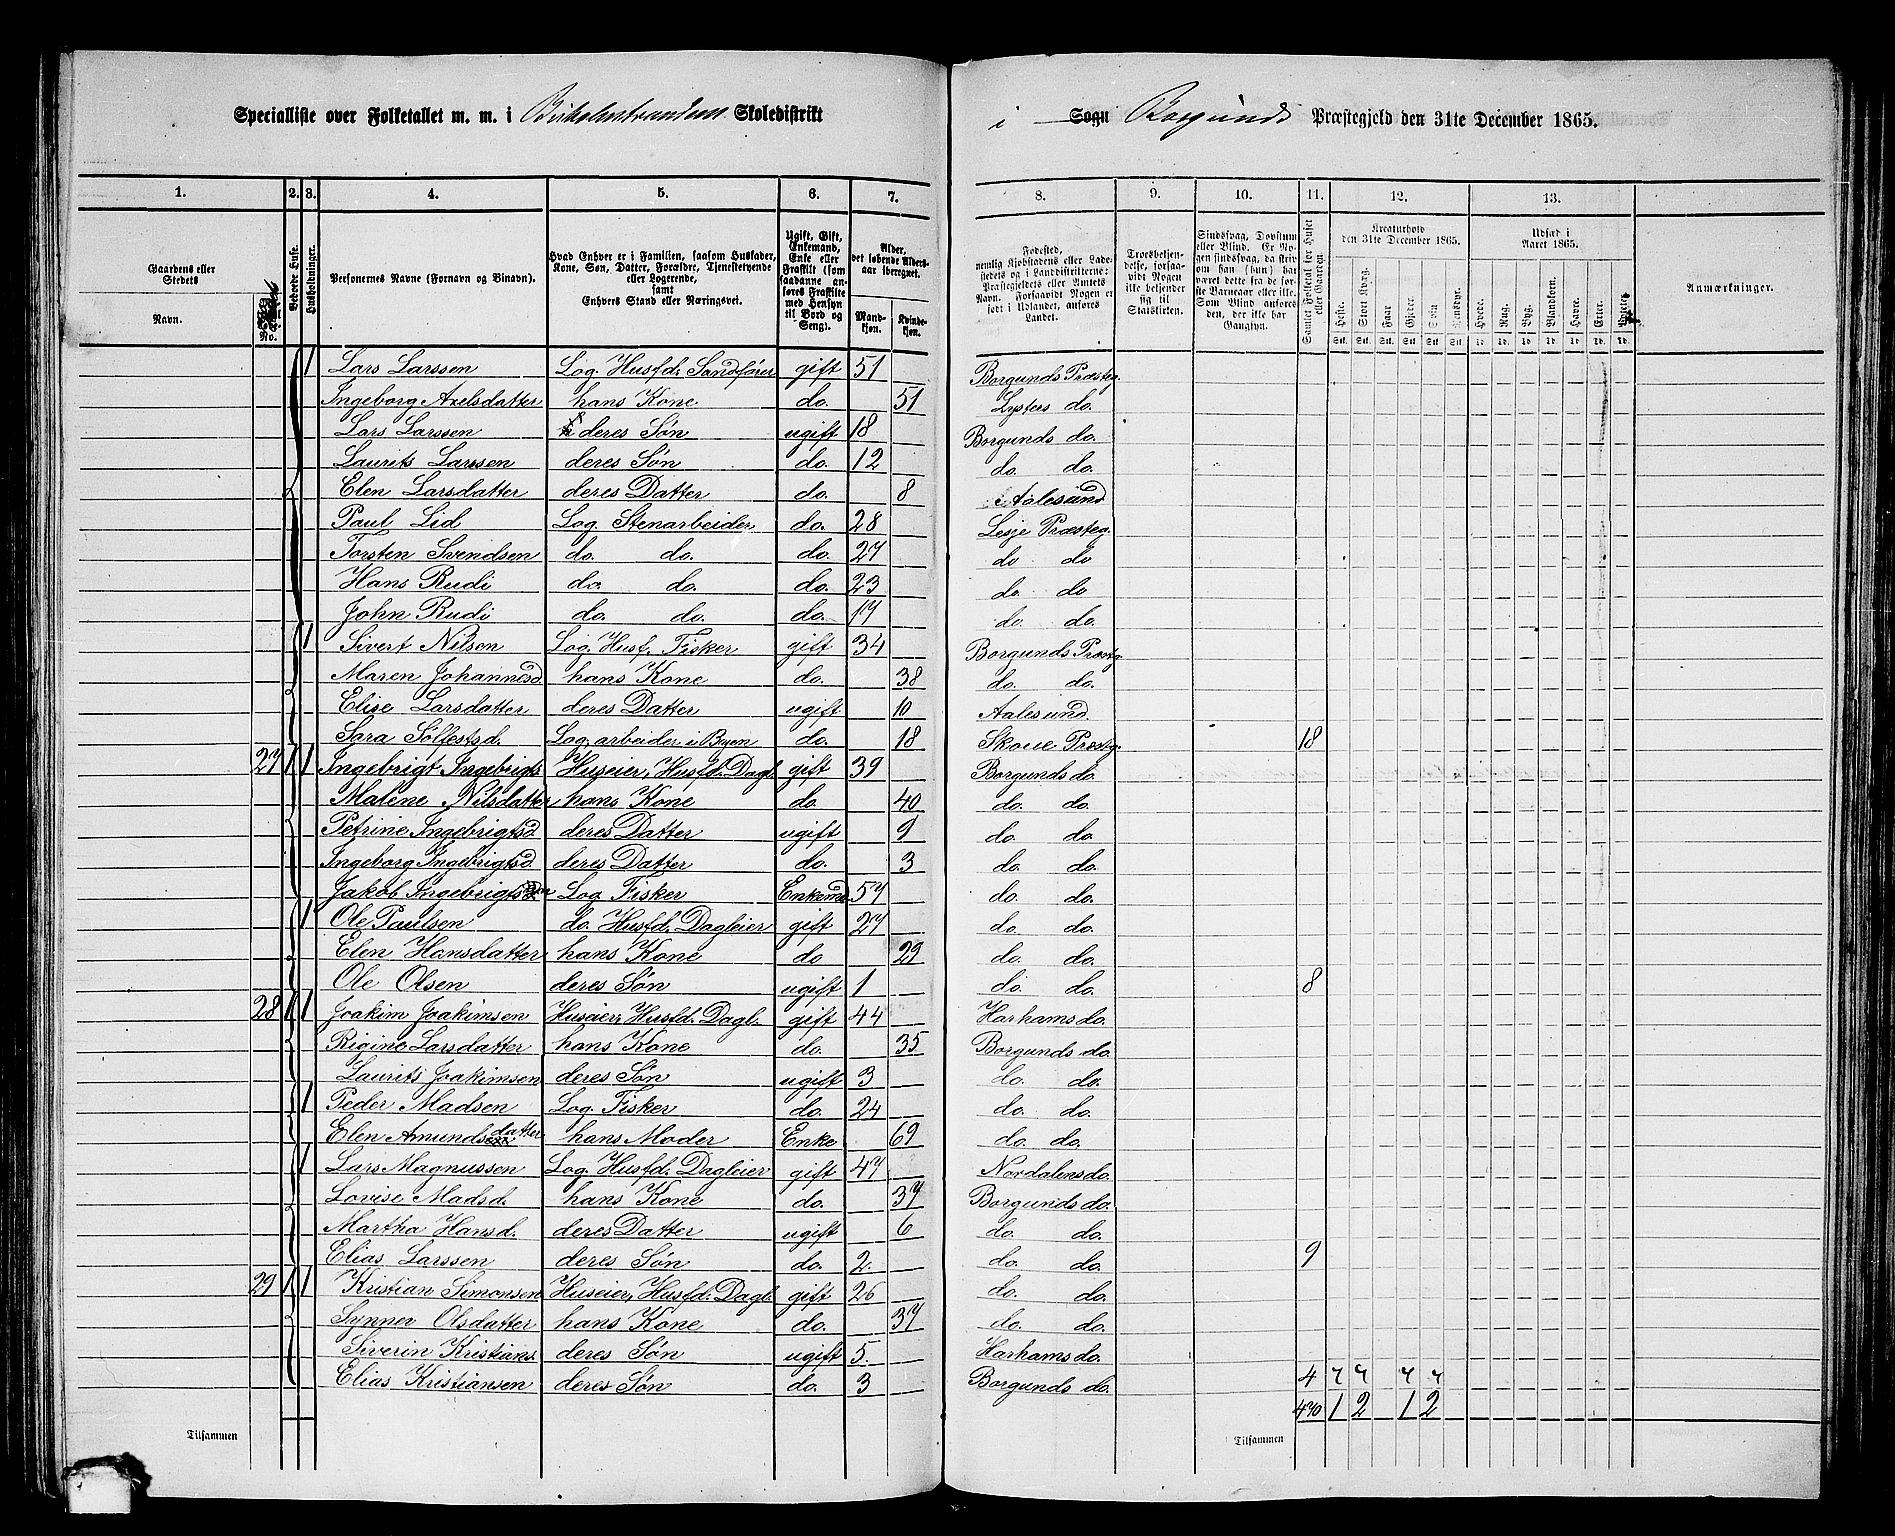 Specialliste over Folketallet m. m. i Skoledistrikt
i Sogn Borgunds Præstegjeld den 31te December 1865.
1. 2. 3. 4. 5. 6. 7. 8. 9. 10. 11. 12. 13.
Gaardens eller Stedets Navn. No. Beboede Huse. Husholdninger. Personernes Navne (Fornavn og Binavn). Hvad Enhver er i Familien, saasom Husfader, Kone, Søn, Datter, Forældre, Tjenestetyende eller Logerende, samt Enhvers Stand eller Næringsvei. Ugift, Gift, Enkemand, Enke eller Fraskilt (som saadanne anføres Fraskilte med Hensyn til Bord og Seng). Alder, det løbende Aldersaar iberegnet. Mandkjøn. Kvindekjøn.
Fødested, nemlig Kjøbstadens eller Ladestedets og i Landdistrikterne: Præstegjeldets eller Amtets Navn. Forsaavidt Nogen er født i Udlandet, anføres Landet. Troesbekjendelse, forsaavidt Nogen ikke bekjender sig til Statskirken. Sindssvag, Døvstum eller Blind. Er Nogen sindssvag, da skrives om han (hun) har været dette fra de første Barneaar eller ikke. Som Blind anføres den, der ikke har Gangsyn. Samlet Folketal for Huset eller Gaarden. Kreaturhold den 31te December 1865. Heste. Stort Kvæg. Faar. Gjeder. Sviin. Rensdyr. Udsæd i Aaret 1865. Hvede. Rug. Byg. Blandkorn. Havre. Erter. Poteter. Anmærkninger.
1 Lars Larssen Log. Husfd. Sandfører gift 51 Borgunds Præsteg.
Ingeborg Axelsdatter hans Kone do. 51 Lysters do.
Lars Larssen deres Søn ugift 18 Borgunds do.
Laurits Larssen deres Søn do. 12 do. do.
Elen Larsdatter deres Datter do. 8 Aalesund
Paul Lid Log. Stenarbeider do. 28 Lesje Præsteg.
Torsten Svendsen do. do. do. 27 do do
Hans Rudi do. do. do. 23 do. do
John Rudi do. do. do. 17 do. do.
1 Sivert Nilsen Log. Husf. Fisker gift 34 Borgunds Præstg.
Maren Johannesd. hans Kone do. 38 do. do.
Elise Larsdatter deres Datter ugift 10 Aalesund.
Sara Sølfestsd. Log. arbeider i Byen do. 18 Præsteg. 18
27 1 1 Ingebrigt Ingebrigts Huseier, Husfd. Dagl. gift 39 Borgunds do.
Malene Nilsdatter hans Kone do. 40 do. do.
Petrine Ingebrigtsd. deres Datter ugift 9 do. do.
Ingeborg Ingebrigtsd. deres Datter do. 3 do. do.
Jakob Ingebrigtsen Log. Fisker Enkemd. 57 do. do.
1 Ole Paulsen do. Husfd. Dagleier gift 27 do. do.
Elen Hansdatter hans Kone do 29 do. do.
Ole Olsen deres Søn ugift 1 do. do. 8
28 1 1 Joakim Joakimsen Huseier, Husfd. Dagl. gift 44 Harhams do.
Larsdatter hans Kone do. 35 Borgunds do.
Laurits Joakimsen deres Søn ugift 3 do. do.
1 Peder Madsen Log. Fisker do. 24 do. do.
Elen Amundsdatter hans Moder Enke 69 do. do.
1 Lars Magnussen Log. Husfd. Dagleier gift 47 Nordalens do.
Lovise Madsd. hans Kone do. 37 Borgunds do.
Martha Hansd. deres Datter ugift 6 do. do.
Elias Larssen deres Søn do. 2. do. do. 9
29 1 1 Kristian Simonsen Huseier, Husfd. Dagl. gift 26 do. do.
Synnev Olsdatter hans Kone do. 37 do. do.
Siverin Kristians. deres Søn ugift 5. Harhams do.
Elias Kristiansen deres Søn do. 3 Borgunds do. 4
1 2 1 2
Tilsammen Tilsammen